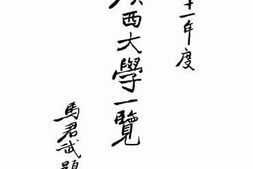 十一年度
西大學一覽
馬君武題